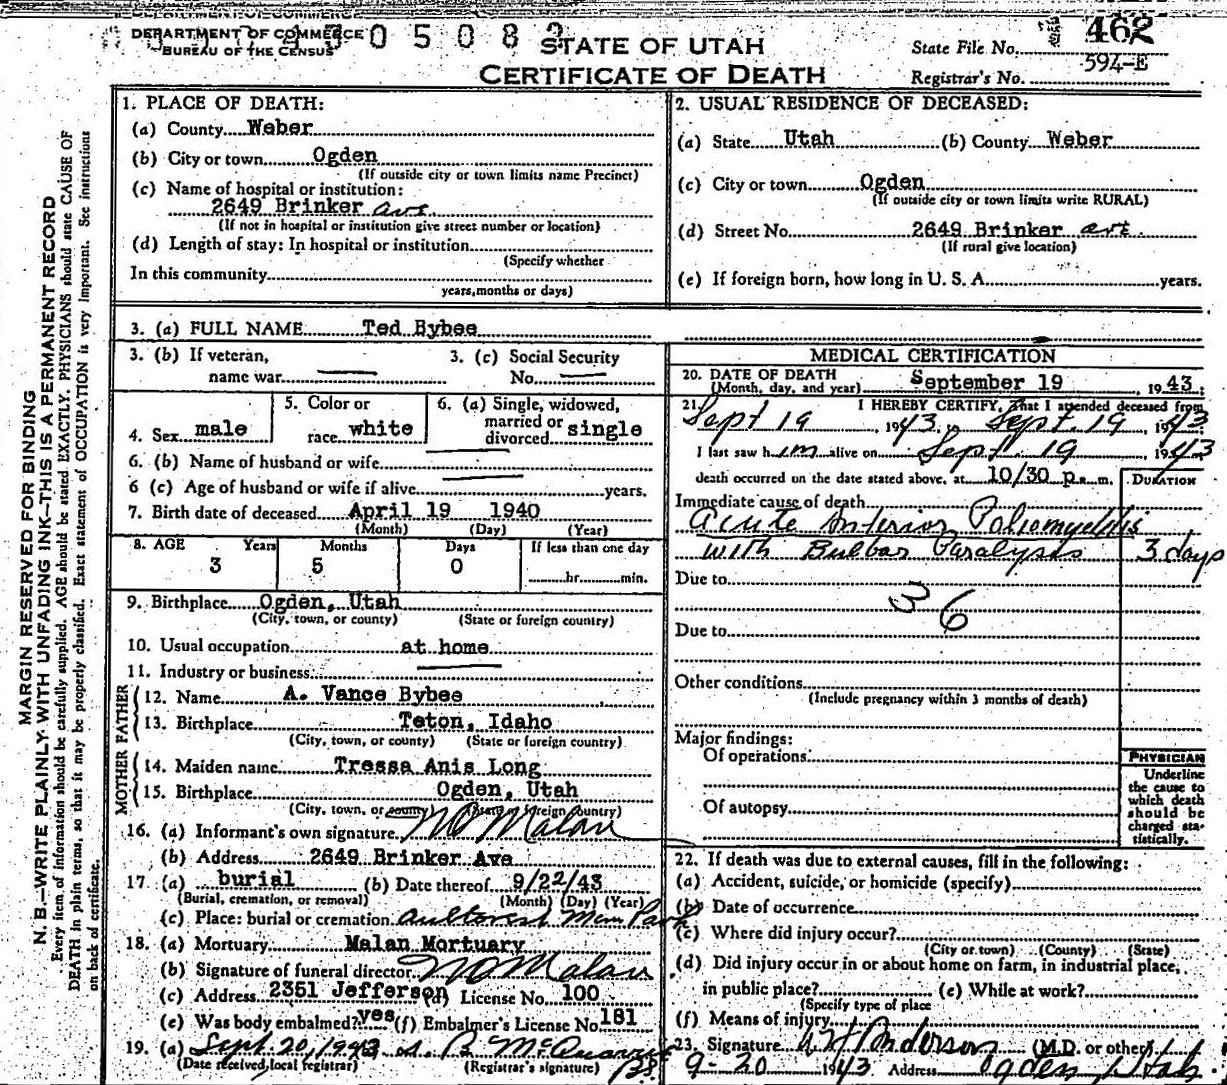 DEPARTMENT OF COMMERCE
BUREAU OF THE CENSUS
0 5 0 8
STATE OF UTAH
CERTIFICATE OF DEATH
State File No. 462
Registrar's No. 594-E
MARGIN RESERVED FOR BINDING
N. B.—WRITE PLAINLY WITH UNFADING INK—THIS IS A PERMANENT RECORD
Every item of information should be carefully supplied. AGE should be stated EXACTLY. PHYSICIANS should state CAUSE OF
DEATH in plain terms, so that it may be properly classified. Exact statement of OCCUPATION is very important. See instructions
on back of certificate.
1. PLACE OF DEATH:
(a) County Weber
(b) City or town Ogden
(If outside city or town limits name Precinct)
(c) Name of hospital or institution:
2649 Brinker ave
(If not in hospital or institution give street number or location)
(d) Length of stay: In hospital or institution
(Specify whether
In this community
years, months or days)
2. USUAL RESIDENCE OF DECEASED:
(a) State Utah (b) County Weber
(c) City or town Ogden
(If outside city or town limits write RURAL)
(d) Street No. 2649 Brinker ave.
(If rural give location)
(e) If foreign born, how long in U. S. A. years.
3. (a) FULL NAME Ted Bybee
3. (b) If veteran, 3. (c) Social Security
name war No.
4. Sex male 5. Color or race white 6. (a) Single, widowed, married or divorced single
6. (b) Name of husband or wife
6 (c) Age of husband or wife if alive years.
7. Birth date of deceased April 19 1940
(Month) (Day) (Year)
8. AGE Years Months Days If less than one day
3 5 0 hr. min.
9. Birthplace Ogden, Utah
(City, town, or county) (State or foreign country)
10. Usual occupation at home
11. Industry or business
FATHER
12. Name A. Vance Bybee
13. Birthplace Teton, Idaho
(City, town, or county) (State or foreign country)
MOTHER
14. Maiden name Tressa Anis Long
15. Birthplace Ogden, Utah
(City, town, or county) (State or foreign country)
16. (a) Informant's own signature N O Malan
(b) Address 2649 Brinker Ave
17 (a) burial (b) Date thereof 9/22/43
(Burial, cremation, or removal) (Month) (Day) (Year)
(c) Place: burial or cremation Aultorest Mem Park
18. (a) Mortuary Malan Mortuary
(b) Signature of funeral director N O Malan
(c) Address 2351 Jefferson (d) License No. 100
(e) Was body embalmed? yes (f) Embalmer's License No. 181
19. (a) Sept. 20, 1943
(Date received, local registrar) (Registrar's signature)
MEDICAL CERTIFICATION
20. DATE OF DEATH
(Month, day, and year) September 19, 1943;
21. I HEREBY CERTIFY, That I attended deceased from
Sept 19, 1943, to Sept. 19, 1943
I last saw him alive on Sept. 19, 1943
death occurred on the date stated above, at 10/30 p. m. DURATION
Immediate cause of death
Acute Anterior Poliomyelitis
with Bulbar Paralysis 3 days
Due to
36
Due to
Other conditions
(Include pregnancy within 3 months of death)
Major findings:
Of operations
Of autopsy
PHYSICIAN
Underline
the cause to
which death
should be
charged sta-
tistically.
22. If death was due to external causes, fill in the following:
(a) Accident, suicide, or homicide (specify)
(b) Date of occurrence
(c) Where did injury occur?
(City or town) (County) (State)
(d) Did injury occur in or about home on farm, in industrial place,
in public place? (e) While at work?
(Specify type of place
(f) Means of injury
23. Signature Anderson (M.D. or other)
9-20 1943 Address Ogden, Utah.